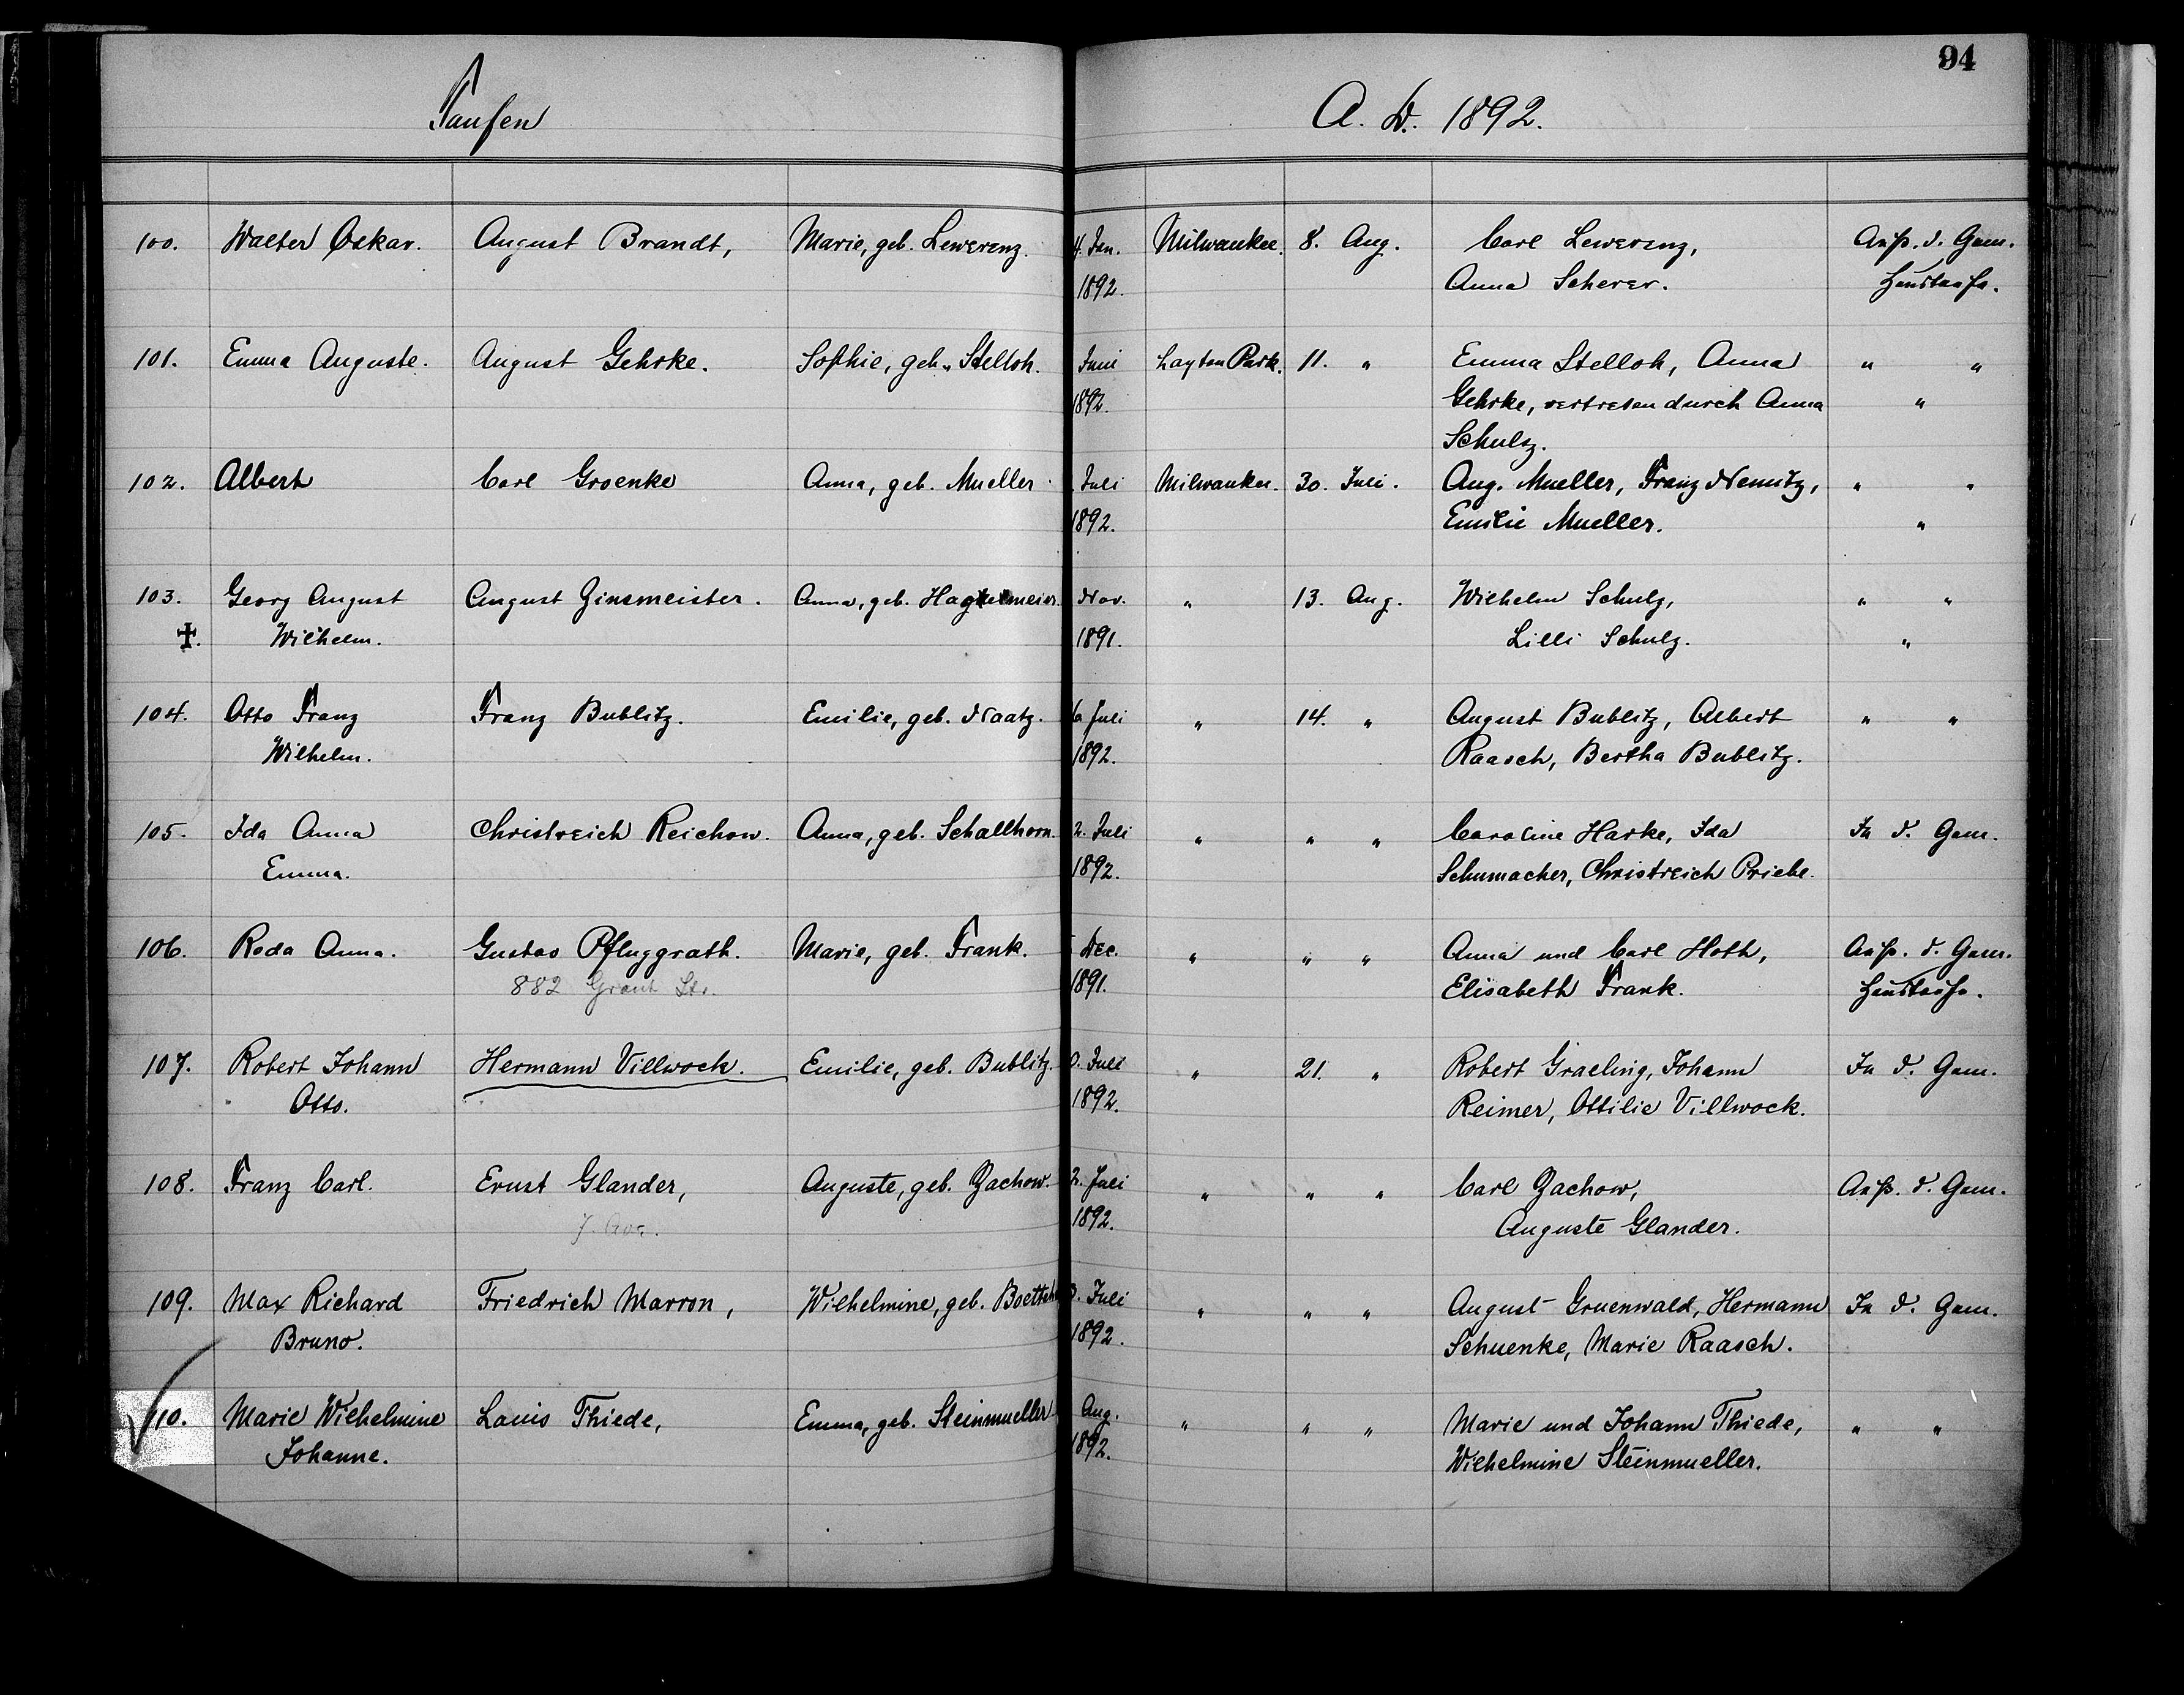 94
Taufen A. D. 1892.
100. Walter Oskar. August Brandt, Marie, geb. Lewerenz. 4. Jan. Milwaukee. 8. Aug. Carl Lewerenz, Auß. d. Gem.
1892. Anna Scherer. Haustaufe.
101. Emma Auguste. August Gehrke. Sophie, geb. Stelloh. Juni Layton Park. 11. " Emma Stelloh, Anna " "
1892. Gehrke, vertreten durch Anna "
Schulz.
102. Albert Carl Groenke Anna, geb. Mueller. Juli Milwaukee. 30. Juli. Aug. Mueller, Franz Nemitz, " "
1892. Emilie Mueller. "
103. Georg August August Zinsmeister. Anna, geb. Nov. " 13. Aug. Wilhelm Schulz, " "
✝. Wilhelm. 1891. Lilli Schulz. "
104. Otto Franz Franz Bublitz. Emilie, geb. Naatz. 6 Juli " 14. " August Bublitz, Albert " "
Wilhelm. 1892. Raasch, Bertha Bublitz.
105. Ida Anna Christreich Reichow. Anna, geb. Schallhorn. 2. Juli " " " Caroline Harke, Ida In d. Gem.
Emma. 1892. Schumacher, Christreich Priebe.
106. Roda Anna. Gustav Pfluggrath. Marie, geb. Frank. Dec. " " " Anna und Carl Hoth, Auß. d. Gem.
882 Grant Str. 1891. Elisabeth Frank. Haustaufe.
107. Robert Johann Hermann Villwock. Emilie, geb. Bublitz. 0. Juli " 21. " Robert Graeling, Johann In d. Gem.
Otto. 1892. Reimer, Ottilie Villwock.
108. Franz Carl. Ernst Glander, Auguste, geb. Zachow. 2. Juli " " " Carl Zachow, Auß. d. Gem.
7. Ave. 1892. Auguste Glander.
109. Max Richard Friedrich Marron, Wilhelmine, geb. Juli " " " August Gruenwald, Hermann In d. Gem.
Bruno. 1892. Schuenke, Marie Raasch.
110. Marie Wilhelmine Louis Thiede, Emma, geb. Steinmueller Aug. " " " Marie und Johann Thiede, " "
Johanne. 1892. Wilhelmine Steinmueller.